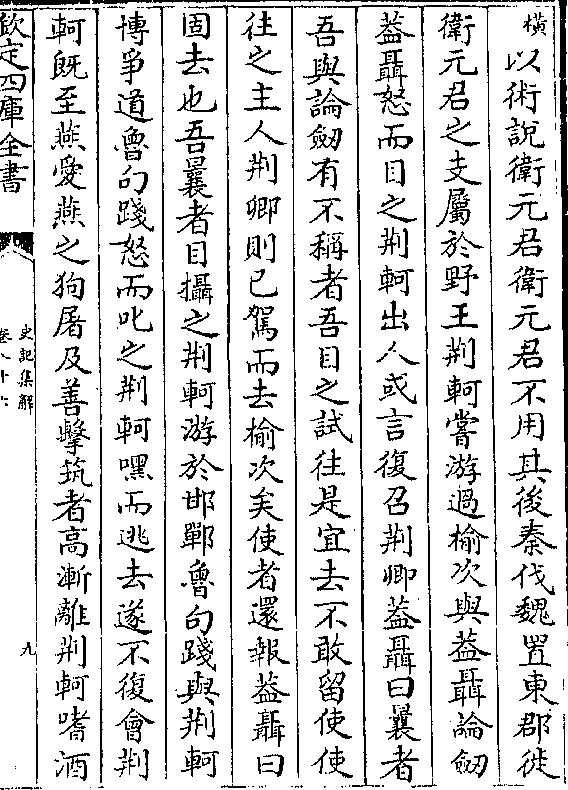 橫以術說衛元君衛元君不用其後秦伐魏置東郡徙
衛元君之支屬於野王荆軻嘗游過榆次與葢聶論劒
葢聶怒而目之荆軻出人或言復召荆卿葢聶曰曩者
吾與論劒有不稱者吾目之試往是宜去不敢留使使
往之主人荆卿則已駕而去榆次矣使者還報葢聶曰
固去也吾曩者目攝之荆軻游於邯鄲魯句踐與荆軻
博爭道魯句踐怒而叱之荆軻嘿而逃去遂不復會荆
軻既至燕愛燕之狗屠及善擊筑者高漸離荆軻嗜酒
欽定四庫全書
史記集解
卷八十六
九